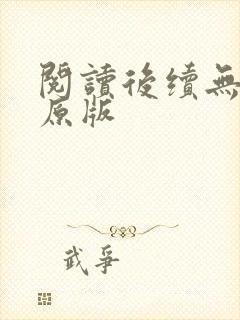 閱讀後續無
原版
武爭